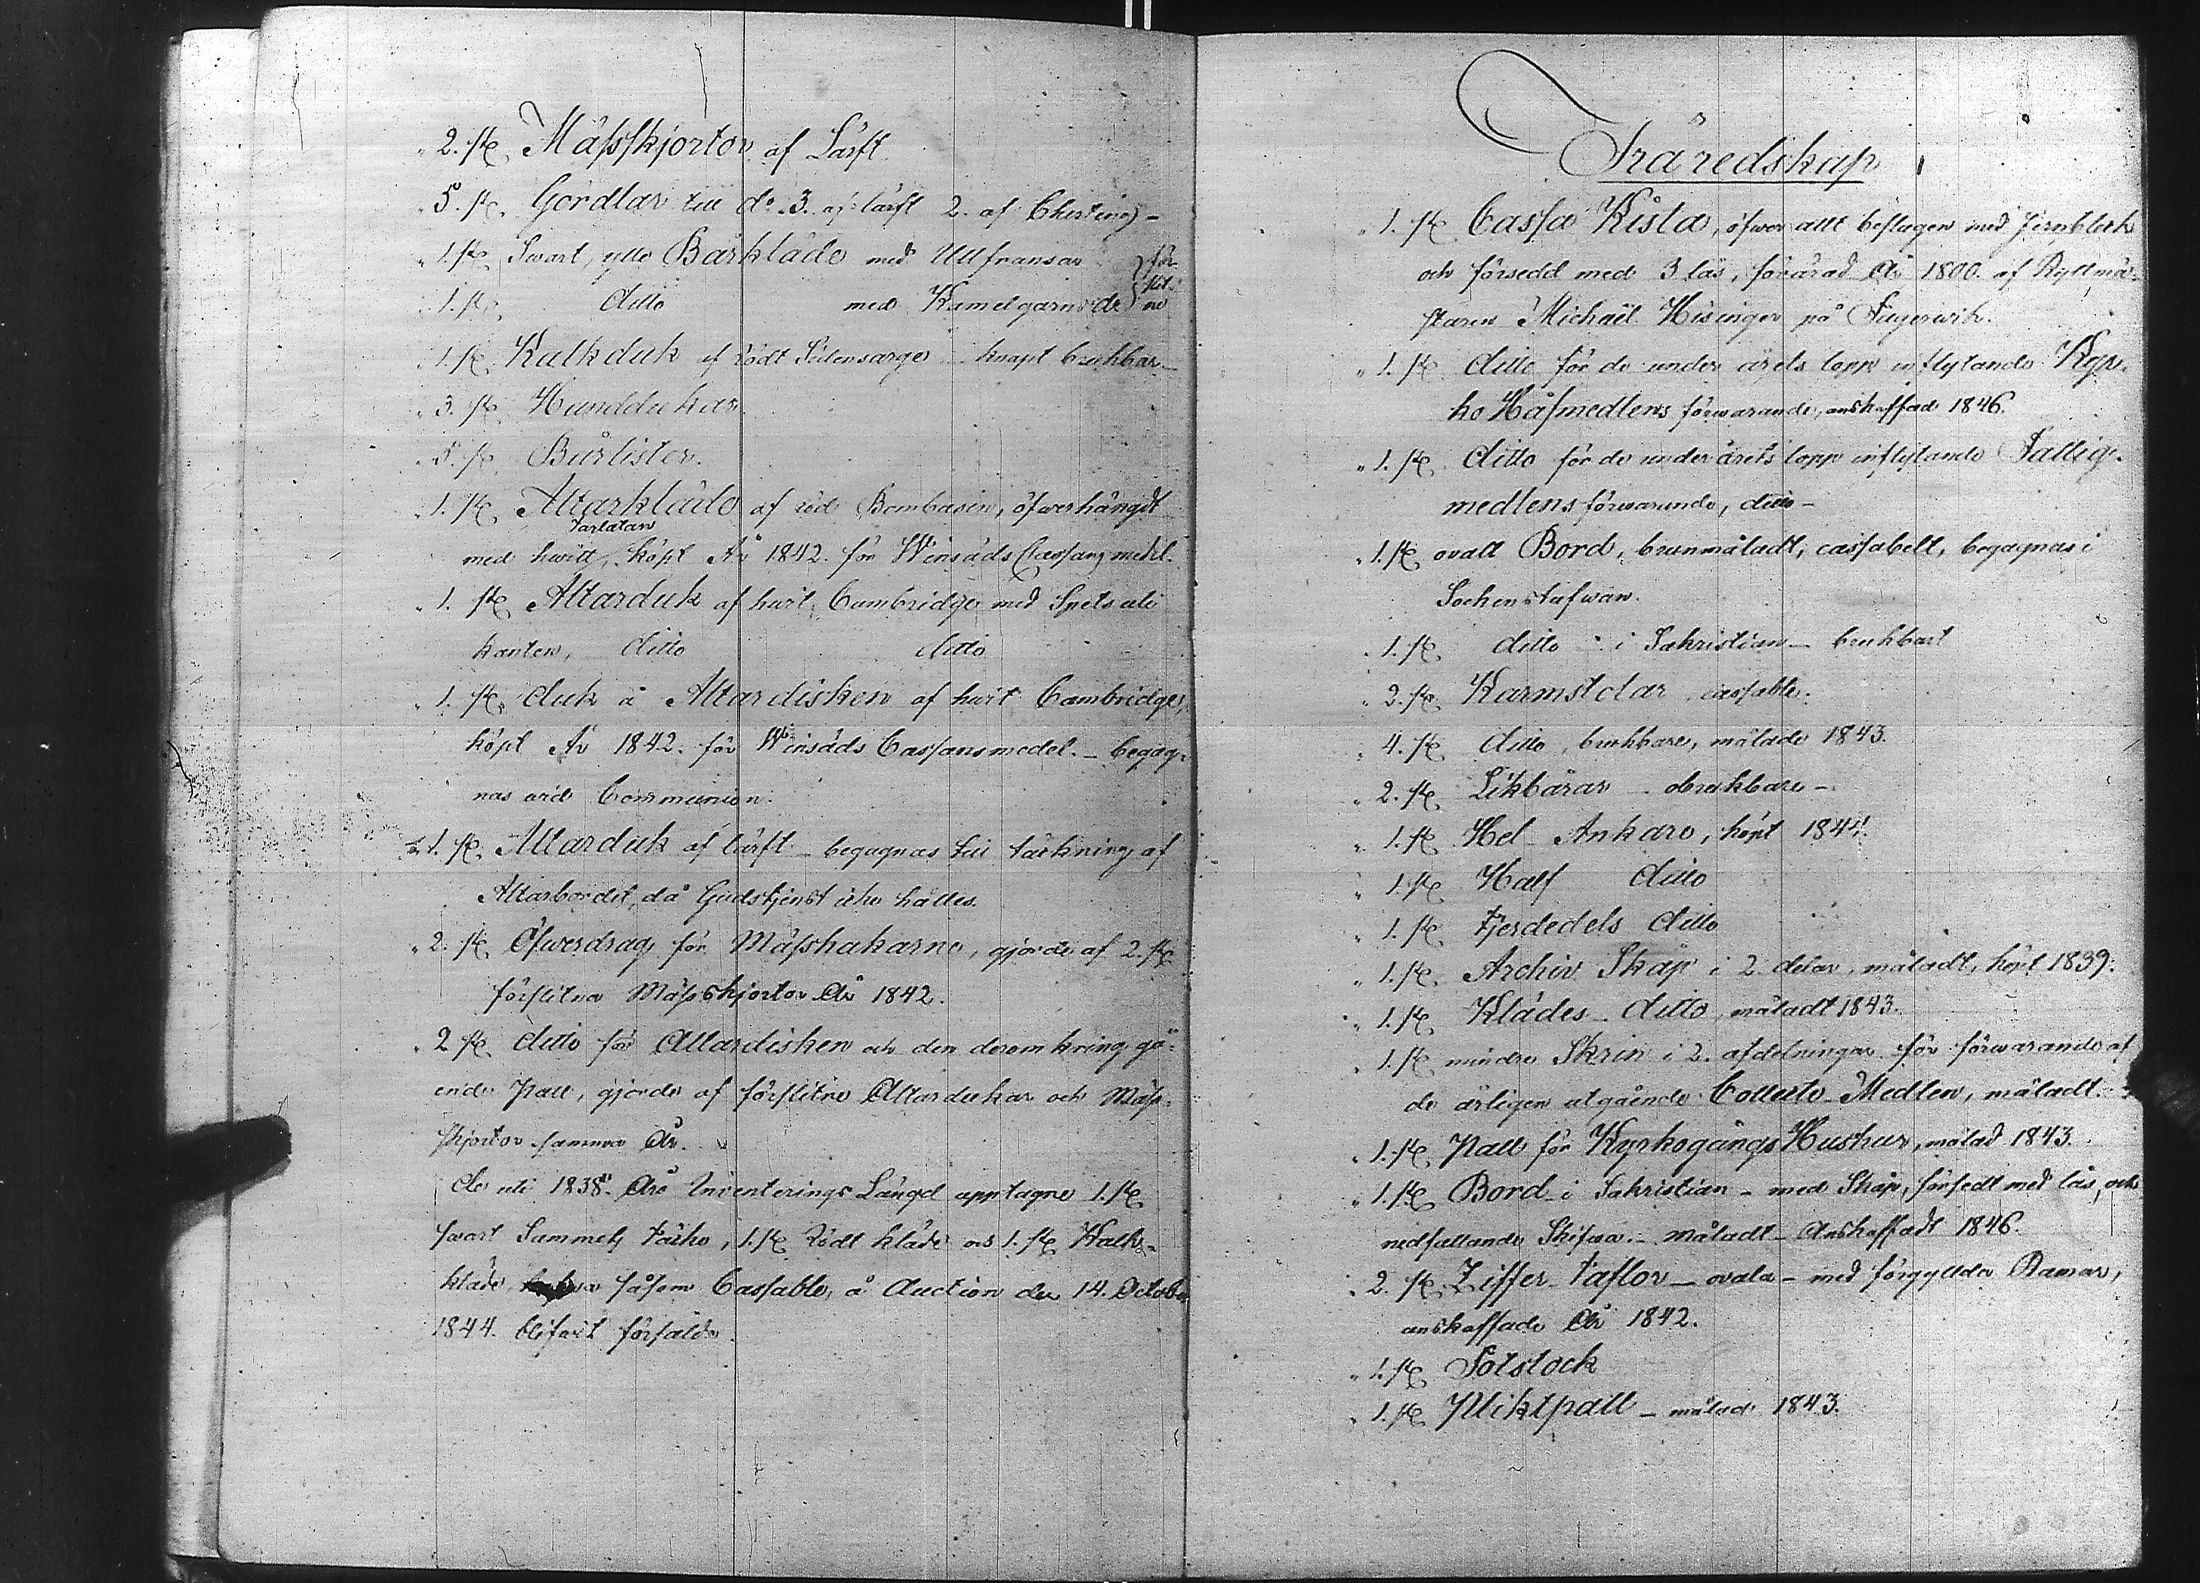 " 2. st. Mässkjortor af Lärft
" 5. st. Gördlar till do. 3. af lärft 2. af Cherting -
" 1. st. Swart, ylle Bårkläde med Ullfransar } för
" 1. st. ditto med Kamelgarns do } slit: ne
" 1. st. Kalkduk af rödt Sidensarge - knapt brukbar -
" 3. st. Handdukar.
" 5. st. Bårlister.
" 1. st. Altarkläde af röd Bombasin, öfwerhängdt
Tarlatan
med hwitt, köpt År 1842. för Winsäds Cassans medel.
" 1. st. Altarduk af hwit Cambridge med Spets uti
kanten, ditto ditto
" 1. st. duk å Altardisken af hwit Cambridge,
köpt År 1842. för Winsäds Cassans medel. - begag-
nas wid Communion.
" 1. st. Altarduk af lärft - begagnas till täckning af
Altarbordet, då Gudstjenst icke hålles.
" 2. st. Öfwerdrag för Mässhakarne, gjorde af 2. st.
förslitna Mässskjortor År 1842.
" 2 st. ditto för Altardisken och den deromkring gå-
ende pall, gjorde af förslitne Altardukar och Mäss-
skjortor samma År.
De uti 1838. Års Inventerings Längd upptagne 1. st.
swart Sammets täcke, 1. st. Rödt kläde och 1. st. Kalk-
kläde, såsom Cassable, å Auction den 14. October
1844. blifwit försålde.
Träredskap
" 1. st. Cassa Kista, öfwer allt beslagen med Jernbleck
och försedd med 3 lås, förärad År 1800. af Ryttmä-
staren Michaël Hisinger på Fagerwik.
" 1. st. ditto för de under årets lopp inflytande Kyr-
ko Håfmedlens förwarande, anskaffad 1846.
" 1. st. ditto för de under årets lopp inflytande Fattig-
medlens förwarande, ditto -
" 1. st. ovalt Bord, brunmåladt, cassabelt, begagnas i
Sockenstufwan.
" 1. st. ditto - i Sakristian - brukbart
" 2. st. Karmstolar cassable.
" 4. st. ditto, brukbare, målade 1843.
" 2. st. Likbårar - obrukbare -
" 1. st. Hel - Ankare, köpt 1844.
" 1. st. Half ditto
" 1. st. Fjerdedels ditto
" 1. st. Archiv Skåp i 2 delar, måladt, köpt 1839.
" 1. st. Klädes - ditto, måladt 1843.
" 1. st. mindre Skrin i 2. afdelningar för förwarande af
de årligen utgående Collecte - Medlen, måladt.
" 1. st. Pall för Kyrkogångs Hustrur, målad 1843.
" 1. st. Bord i Sakristian - med Skåp, försedt med lås, och
nedfallande Skifwa - måladt - Anskaffadt 1846.
" 2. st. Ziffer - taflor - ovala - med förgyllda Ramar,
anskaffade År 1842.
" 1. st. Fotstock
" 1. st. Pliktpall - målad 1843.